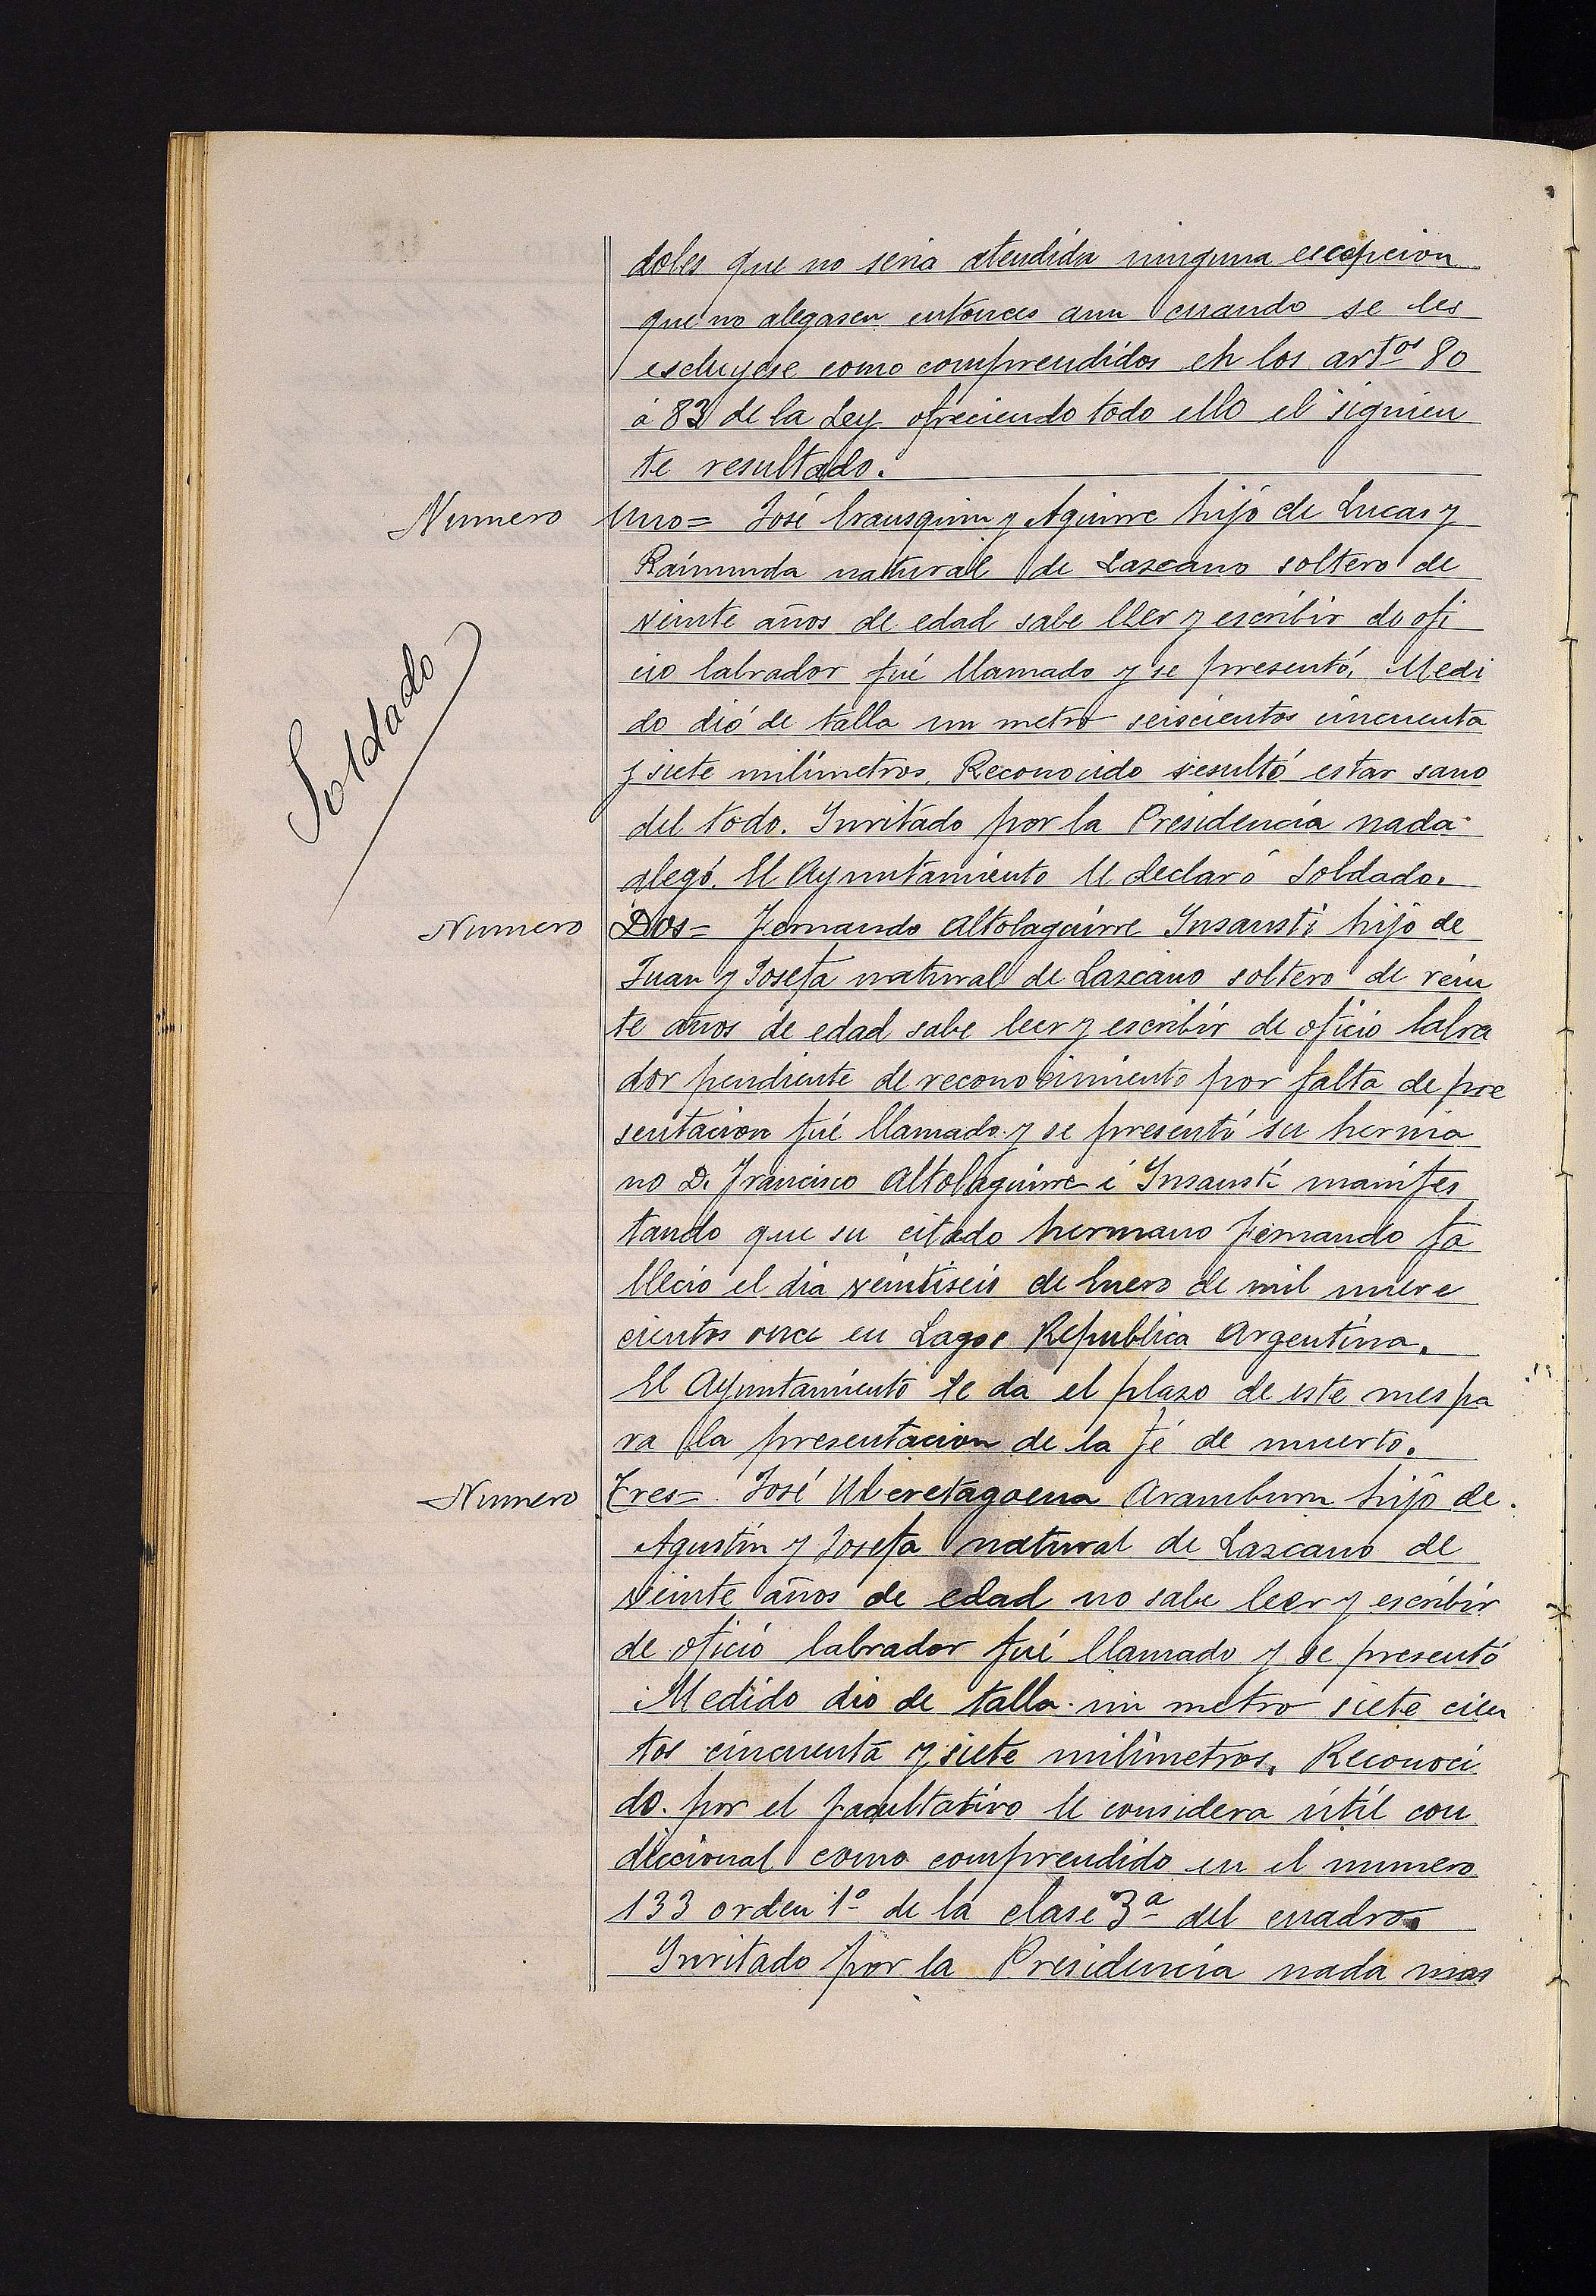 doles que no seria atendida ninguna escepcion
que no alegasen entonces aun cuando se les
escluyese como comprendidos en los artos 80
á 83 de la Ley ofreciendo todo ello el siguien
te resultado.
Numero Uno= José Irausquin y Aguirre hijo de Lucas y
Raimunda natural de Lazcano soltero de
veinte años de edad sabe ller y escribir de ofi
cio labrador fué llamado y se presentó, Medi
do dió de talla un metro seiscientos cincuenta
y siete milimetros. Reconocido resultó estar sano
Soldado
del todo. Invitado por la Presidencia nada
alegó. El Ayuntamiento le declaró Soldado.
Numero Dos= Fernando Altolaguirre Insausti hijo de
Juan y Josefa natural de Lazcano soltero de vein
te años de edad sabe leer y escribir de oficio labra
dor pendiente de reconocimiento por falta de pre
sentacion fué llamado y se presentó su herma
no D. Francisco Altolaguirre é Insausti manifes
tando que su citado hermano Fernando fa
lleció el dia veintiseis de Enero de mil nueve
cientos once en Lagos Republica Argentina.
El Ayuntamiento le da el plazo de este mes pa
ra la presentacion de la fé de muerto.
Numero Tres= José Uberetagoena Aramburu hijo de
Agustin y Josefa natural de Lazcano de
veinte años de edad no sabe leer y escribir
de oficio labrador fué llamado y se presentó
Medido dio de talla un metro siete cien
tos cincuenta y siete milimetros. Reconoci
do por el facultativo le considera útil con
diccional como comprendido en el numero
133 orden 1º de la clase 3ª del cuadro.
Invitado por la Presidencia nada mas